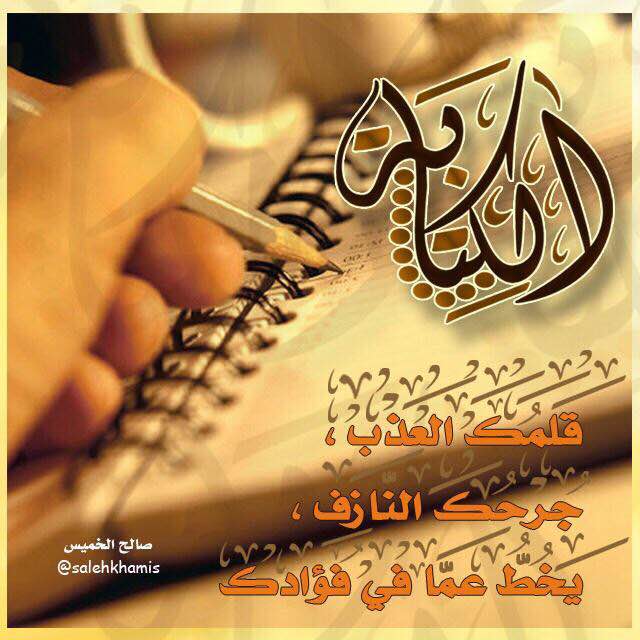 الكتابة
قلمك العذب ،
جُرحُك النّازف ،
يخُطّ عمّا في فؤادك
صالح الخميس
@salehkhamis